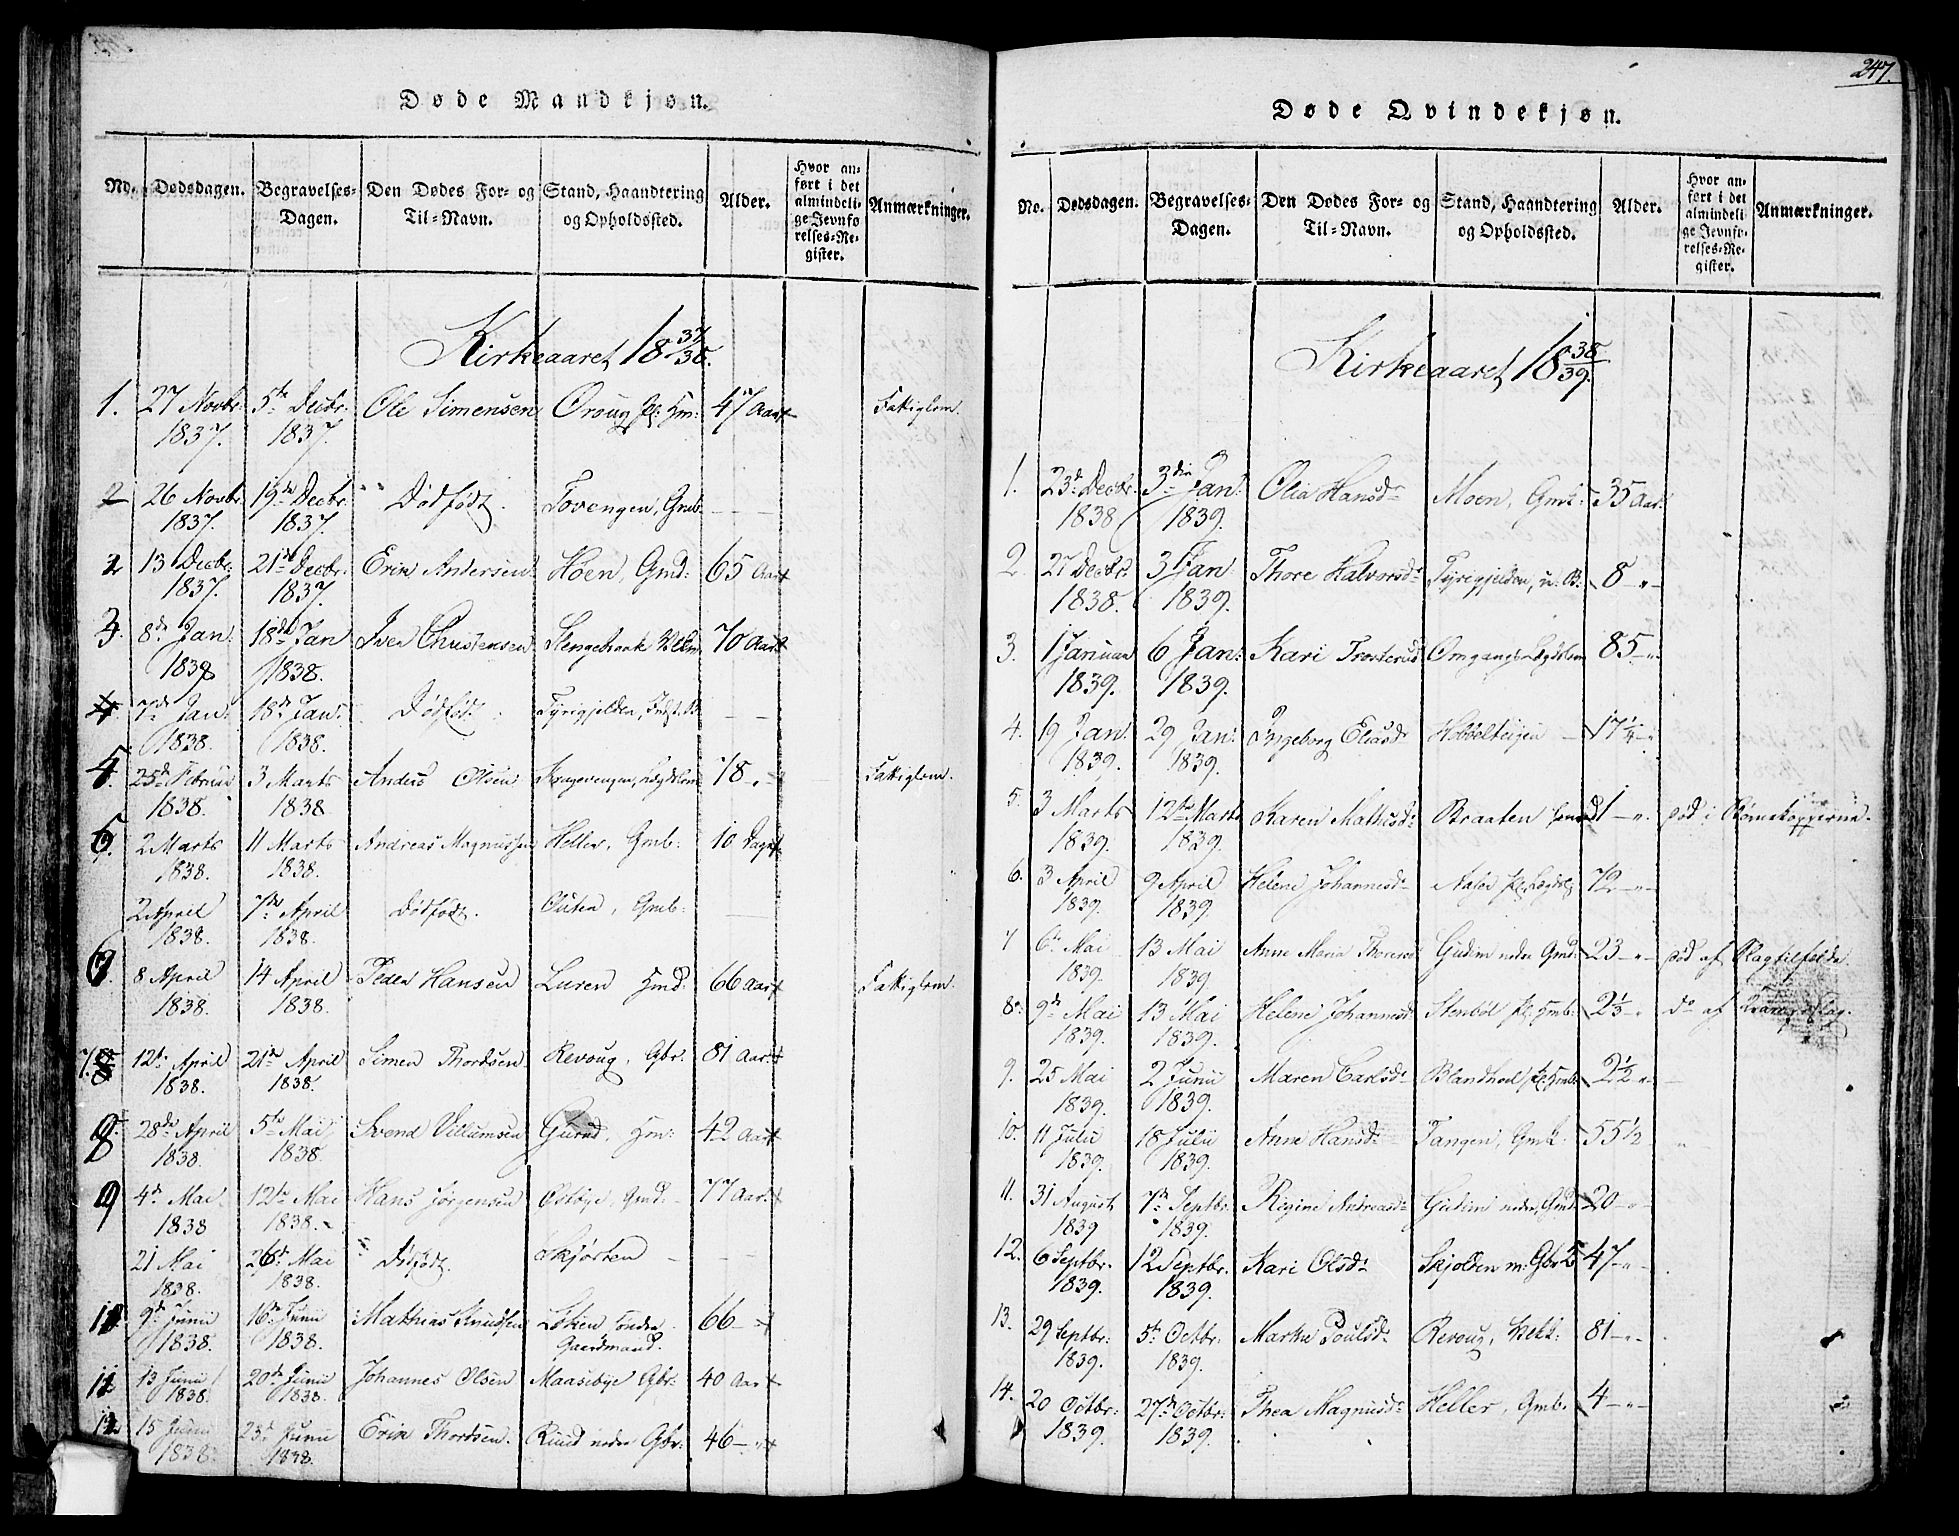 Døde Mandkjøn.
No. Dødsdagen. Begravelses-Dagen. Den Dødes For- og Til-Navn. Stand, Haandtering og Opholdssted. Alder. Hvor anført i det almindelige Jevnførelses-Register. Anmærkninger.
Kirkeaaret 1837/38.
1. 27 Novbr. 1837. 5te Decbr. 1837. Ole Simensen Oroug pl: Hm: 47 Aar Fattiglem.
2 26 Novbr. 1837. 19de Decbr. 1837. Dødfødt. Tovengen, Gmb.
2 13 Decbr. 1837. 21de Decbr. 1837. Erik Andersen Høen, Gmd: 65 Aar
3. 8de Jan: 1838 18de Jan 1838. Iver Christensen Slengebraak 70 Aar
4. 7de Jan: 1838. 18de Jan: 1838. Dødfødt. Tyrigjelden,
4. 25de Februar 1838. 3 Marts 1838 Anders Olsen Krogevengen, Lægdslem 78 Fattiglem.
5. 2 Marts 1838. 11 Marts 1838. Andreas Magnussen Heller, Gmb: 10 Dage
2 April 1838. 7de April 1838. Dødfødt. Outen, Gmb:
6. 8 April 1838. 14 April 1838. Peder Hansen Luren Hmd: 66 Aar Fattiglem.
7. 12te April 1838. 21de April 1838. Simen Thordsen Revoug, Gbr. 81 Aar.
8 28de April 1838. 5te Mai 1838. Svend Villumsen Gurud, Hm: 42 Aar
9 4de Mai 1838 12te Mai 1838. Hans Jørgensen Ostbye, Gmd. 77 Aar.
21 Mai 1838. 26de Mai 1838. Dødfødt. Skjørten
10 9de Junii 1838. 16de Junii 1838. Mathias Knudsen Løken søndre Gaardmand. 66
11 13 Junii 1838. 20de Junii 1838. Johannes Olsen Maasebye Gbr: 40 Aar
12 15 Junii 1838. 23de Junii 1838. Erik Thordsen. Ruud nedre Gbr: 46
247.
Døde Qvindekjøn.
No. Dødsdagen. Begravelses-Dagen. Den Dødes For- og Til-Navn. Stand, Haandtering og Opholdssted. Alder. Hvor anført i det almindelige Jevnførelses-Register. Anmærkninger.
Kirkeaaret 1838/39.
1. 23de Decbr. 1838 3die Jan: 1839. Olia Hansdr Moen, Gmk: 35 Aar
2. 27 Decbr. 1838. 3 Jan 1839. Thore Halvorsdr Tyrigjelden, u. B: 8
3. 1 Januar 1839. 6 Jan: 1839. Kari Trosterud Omgangs Lægdslem 85
4. 19 Jan. 1839. 29 Jan: 1839. Ingeborg Eliasdr Hobøelteigen 17 1/4
5. 3 Marts 1839. 12te Marts 1839. Karen Mathisdr Braaten 1 Død i Børnekopperne.
6. 3 April 1839. 9 April 1839. Helene Johannesdr Aaser pl: Lægdsl 72
7 6te Mai 1839. 13 Mai 1839. Anne Maria Thoresdr Gudim nedre Gmd: 23 Død af Slagtilfælde
8. 9de Mai 1839. 13 Mai 1839. Helene Johannesdr Stenbøl pl: Hmb: 2 1/3 Do af
9. 25 Mai 1839. 2 Junii 1839. Maren Carlsdr Blandhoel pl: Hmb: 2 1/2
10. 11 Julii 1839. 18 Julii 1839. Anne Hansdr Tangen, Gmk: 55 1/2
11. 31 August 1839 7de Septbr. 1839. Regine Andreasdr Gudim nedre, Gmd: 20
12. 6 Septbr. 1839. 12 Septbr. 1839. Kari Olsdr Skjolden m: Gbr 47
13. 29 Septbr: 1839. 5te Octbr. 1839. Marthe Poulsdr Revoug, 81
14. 20 Octbr: 1839. 27de Octbr: 1839. Thea Magnusdr Heller, Gmb. 4